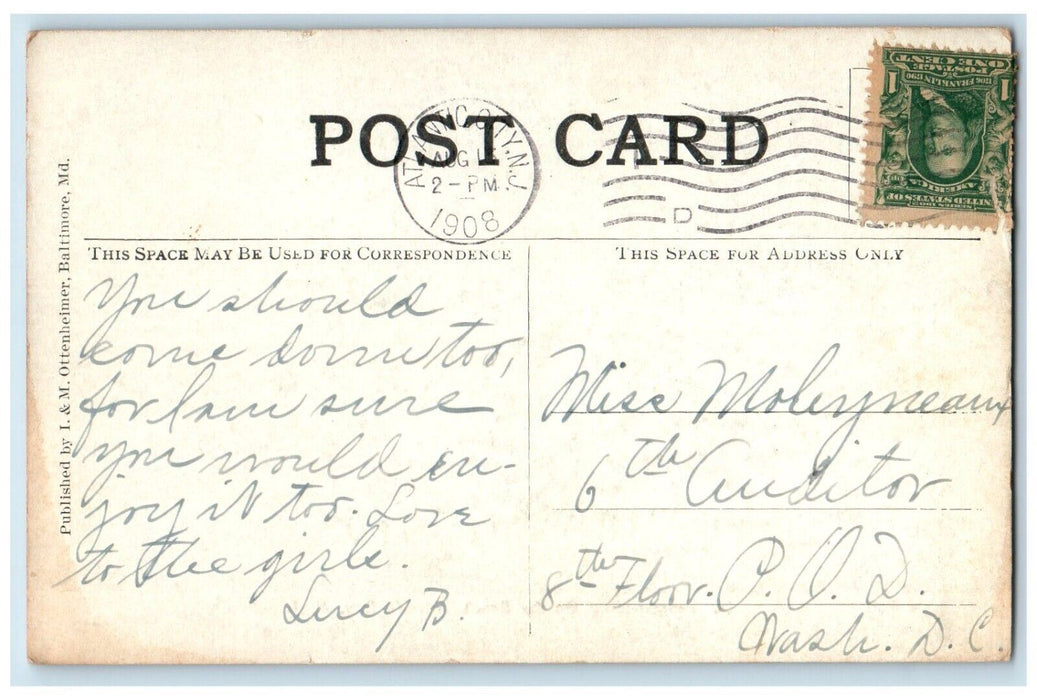 POST CARD
ATLANTIC CITY, N.J.
AUG
2 - PM
1908
D
UNITED STATES OF AMERICA
1706 FRANKLIN 1790
POSTAGE
ONE CENT
1 1
Published by I. & M. Ottenheimer, Baltimore, Md.
THIS SPACE MAY BE USED FOR CORRESPONDENCE
You should
come down too,
for I am sure
you would en-
joy it too. Love
to the girls.
Lucy B.
THIS SPACE FOR ADDRESS ONLY
Miss Moleyneaux
6th Auditor
8th Floor. P. O. D.
Wash. D. C.